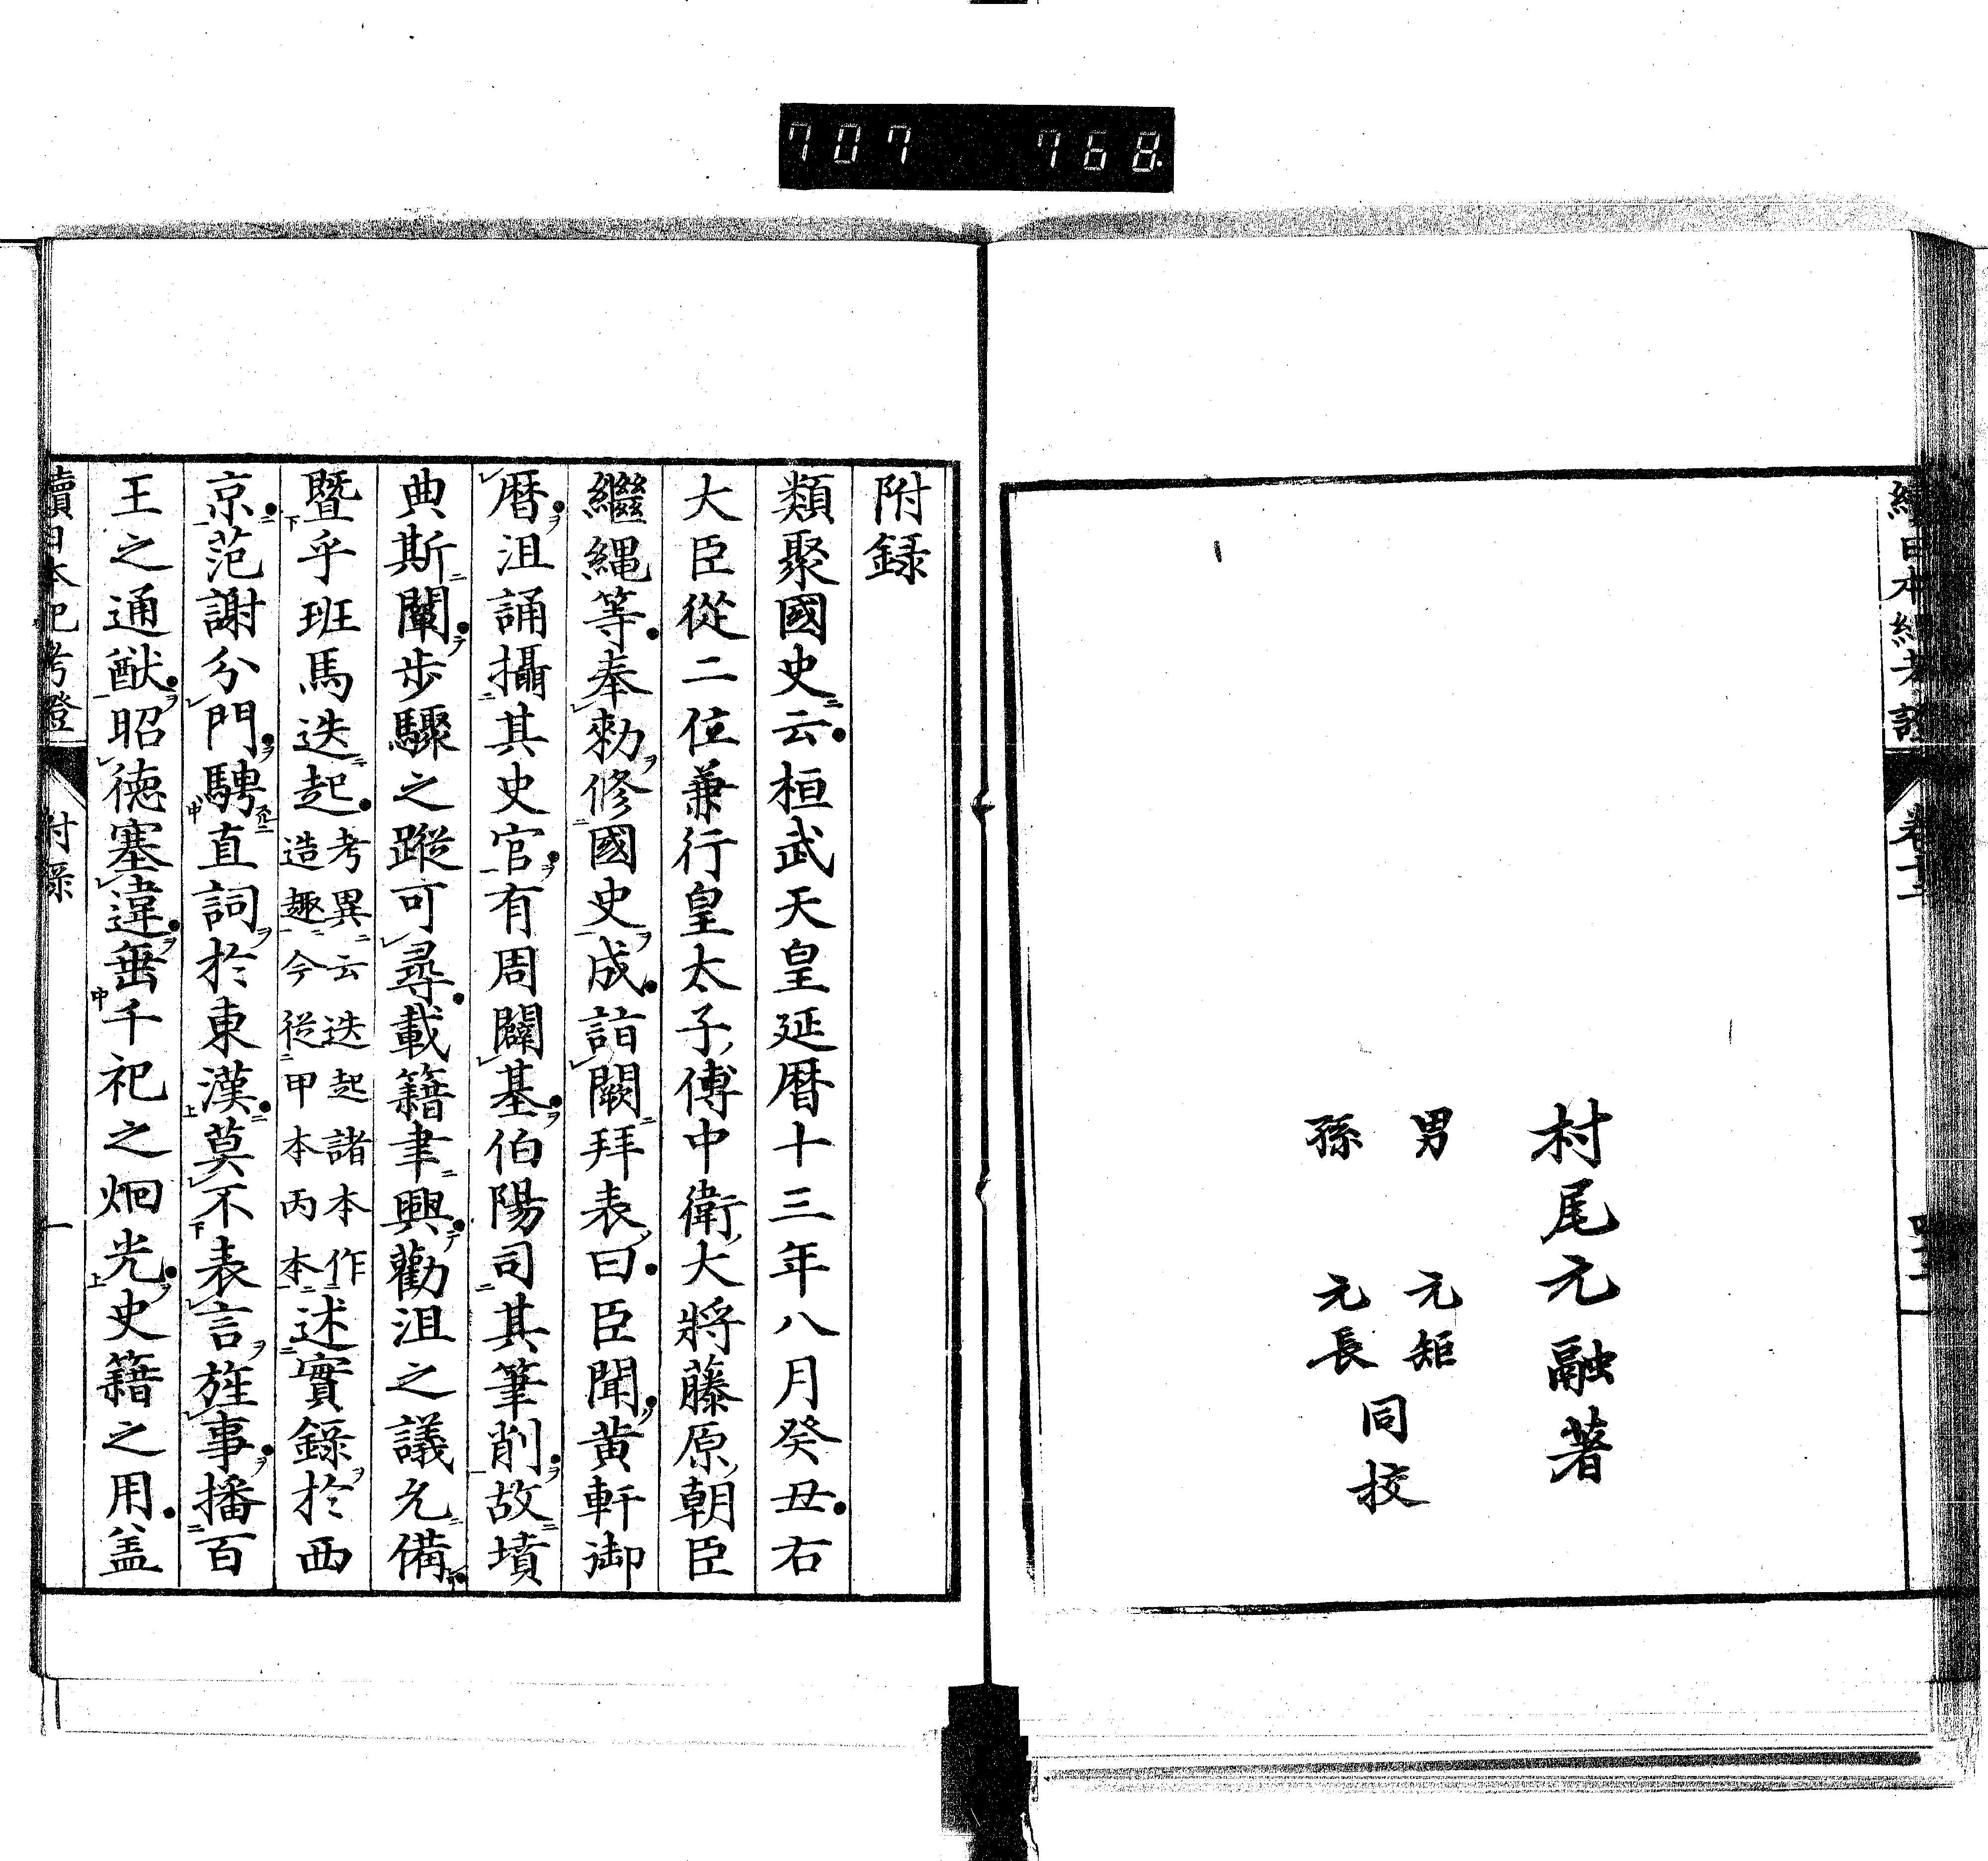 707 768
續日本紀考證 卷十二
村尾元融著
男 元矩
孫 元長
同校
附録
類聚國史云桓武天皇延暦十三年八月癸丑右
大臣從二位兼行皇太子傅中衛大將藤原朝臣
繼縄等奉勅修國史成詣闕拜表曰臣聞黄軒御
暦沮誦攝其史官有周闢基伯陽司其筆削故墳
典斯闡歩驟之蹤可尋載籍聿興勸沮之議允備
暨乎班馬迭起考異云迭起諸本作造趣今從甲本丙本述實錄於西
京范謝分門騁直詞於東漢莫不表言旌事播百
王之通猷昭德塞違垂千祀之炯光史籍之用盖
續日本紀考證 附録 一